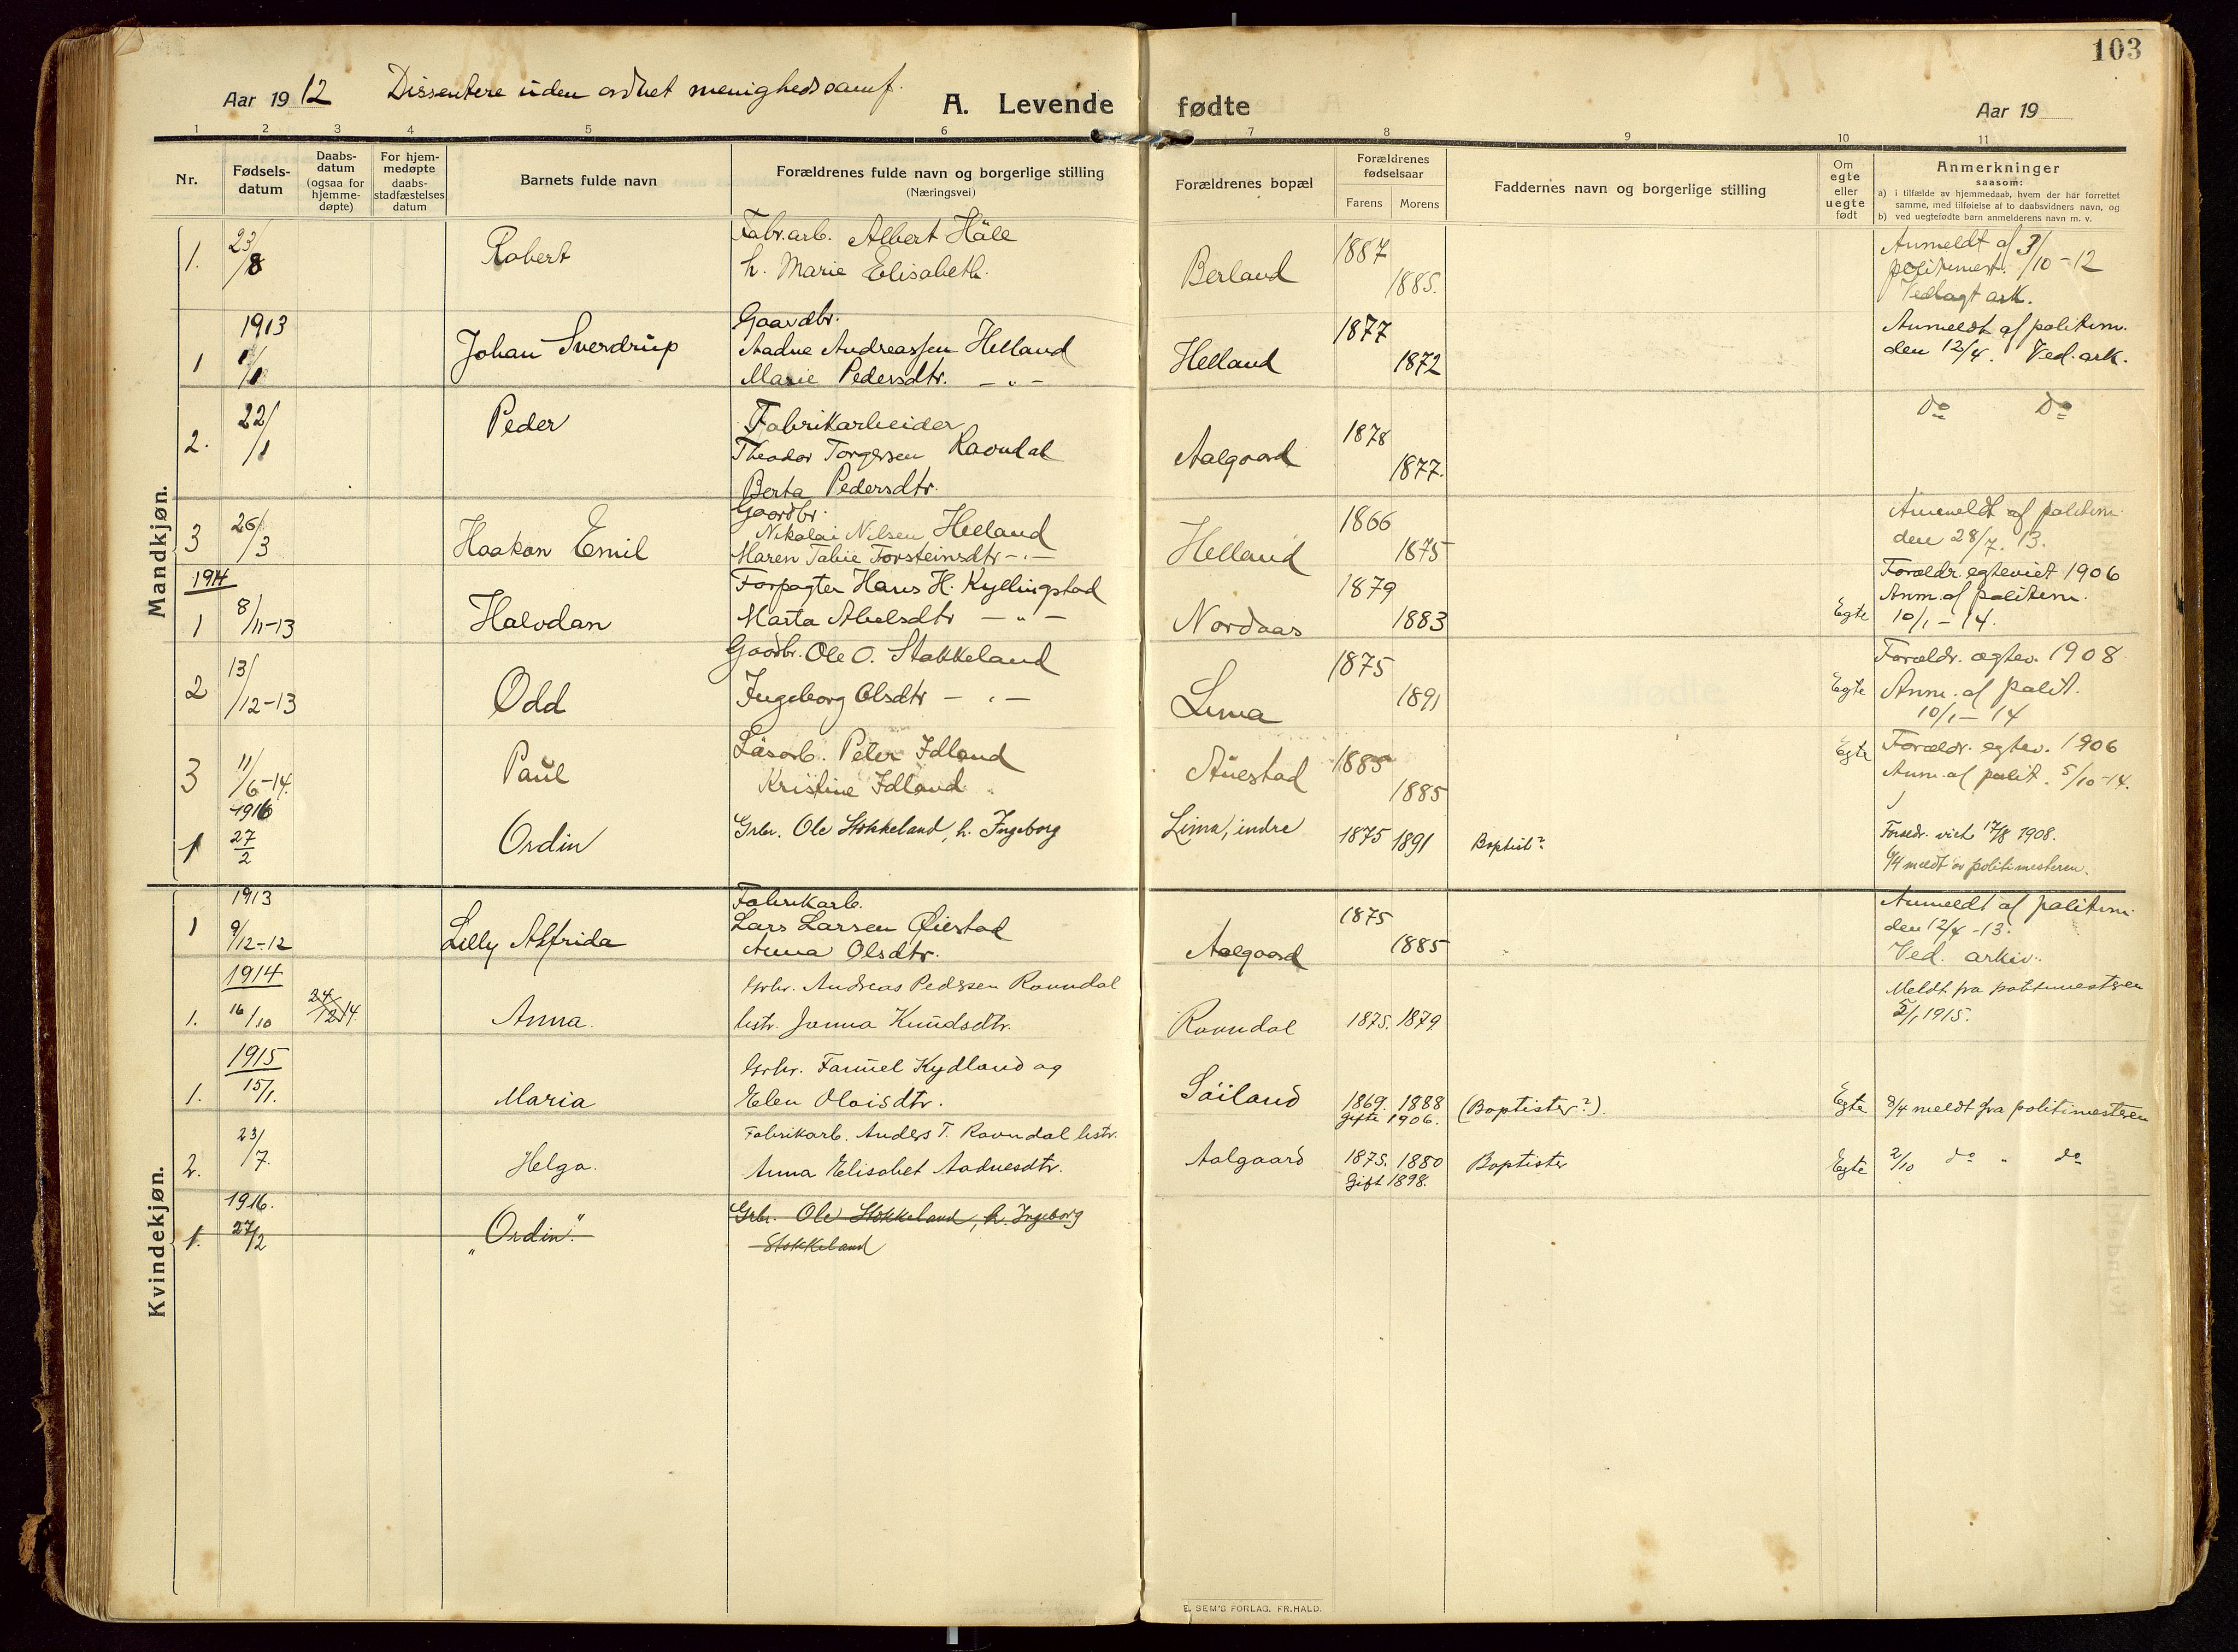 103
Aar 1912 Dissentere uden ordnet menighedssamf.
A. Levende fødte
Aar 19
1 2 3 4 5 6 7 8 9 10 11
Nr. Fødsels-datum Daabs-datum (ogsaa for hjemme-døpte) For hjem-medøpte daabs-stadfæstelses datum Barnets fulde navn Forældrenes fulde navn og borgerlige stilling (Næringsvei) Forældrenes bopæl Forældrenes fødselsaar Farens Morens Faddernes navn og borgerlige stilling Om egte eller uegte født Anmerkninger saasom:
a) i tilfælde av hjemmedaab, hvem der har forrettet samme, med tilføielse af to daabsvidners navn, og
b) ved uegtefødte barn anmelderens navn m. v.
Mandkjøn.
1. 23/8 Robert Fabr.arb. Albert Häll
h. Marie Elisabeth. Berland 1887 1885. Anmeldt af 3/10-12
politimest.
Vedlagt ark.
1913
1 1/1 Johan Sverdrup Gaardbr.
Aadne Andreassen Helland
Marie Pedersdtr. -"- Helland 1877 1872 Anmeldt af politim.
den 12/4. Ved. ark.
2. 22/1 Peder Fabrikarbeider
Theodor Torgersen Ravndal
Berta Pedersdtr. Aalgaard 1878 1877. do do
3 26/3 Haakon Emil Gaardbr.
Nikolai Nilsen Helland
Maren Torsteinsdtr -"- Helland 1866 1875 Anmeldt af politim.
den 28/7. 13.
1914
1 8/11-13 Halvdan Forpagter Hans H. Kyllingstad
Marta Abelsdtr -"- Nordaas 1879 1883 Egte Forældr. egteviet 1906
Anm. af politim.
10/1-14.
2 13/12-13 Odd Gaardbr. Ole O. Stokkeland
Ingeborg Olsdtr -"- Lima 1875 1891 Egte Forældr. egtev. 1908
Anm. af polit.
10/1-14
3 11/6-14. Paul Løsarb. Peter Idland
Kristine Idland Auestad 1885 1885 Egte Forældr. egtev. 1906
Anm. af polit. 5/10-14.
1916
1 27/2 Ordin Grbr. Ole Stokkeland, h. Ingeborg Lima, indre 1875 1891 Baptist? Forældr. viet 17/8 1908.
6/4 meldt av politimesteren.
Kvindekjøn.
1913
1 9/12-12 Lilly Alfrida Fabrikarb.
Lars Larsen Øiestad
Anna Olsdtr. Aalgaard 1875 1885 Anmeldt af politim.
den 12/4-13.
Ved. arkiv.
1914
1. 16/10 24/12 14. Anna. Grbr. Andreas Pedersen Ravndal
hstr. Janna Knudsdtr. Ravndal 1875. 1879 Meldt fra politimesteren
5/1 1915.
1915
1. 15/1. Maria Grbr. Samuel Kydland og
Elen Olaisdtr. Söiland 1869. 1888
Gifte 1906. (Baptister?). Egte 8/4 meldt fra politimesteren
2. 23/7. Helga. Fabrikarb. Anders T. Ravndal hstr.
Anna Elisabet Aadnesdtr. Aalgaard 1875. 1880
Gift 1898. Baptister Egte 2/10 do " do
1916.
1. 27/2 "Ordin". Grbr. Ole Stokkeland, h. Ingeborg
Stokkeland
E. SEM'S FORLAG, FR.HALD.